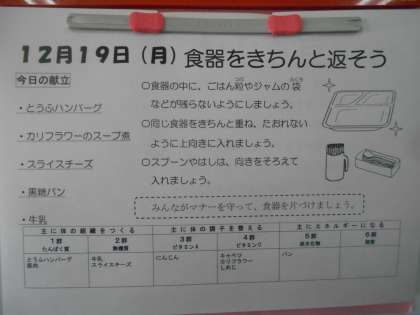 12月19日(月) 食器をきちんと返そう
今日の献立
・とうふハンバーグ
・カリフラワーのスープ煮
・スライスチーズ
・黒糖パン
・牛乳
○食器の中に、ごはん粒やジャムの袋
などが残らないようにしましょう。
○同じ食器をきちんと重ね、たおれない
ように上向きに入れましょう。
○スプーンやはしは、向きをそろえて
入れましょう。
みんながマナーを守って、食器を片づけましょう。
主に体の組織をつくる 主に体の調子を整える 主にエネルギーになる
1群 2群 3群 4群 5群 6群
たんぱく質 無機質 ビタミンA ビタミンC 炭水化物 脂質
とうふハンバーグ 牛乳 にんじん キャベツ パン
スライスチーズ カリフラワー
しめじ